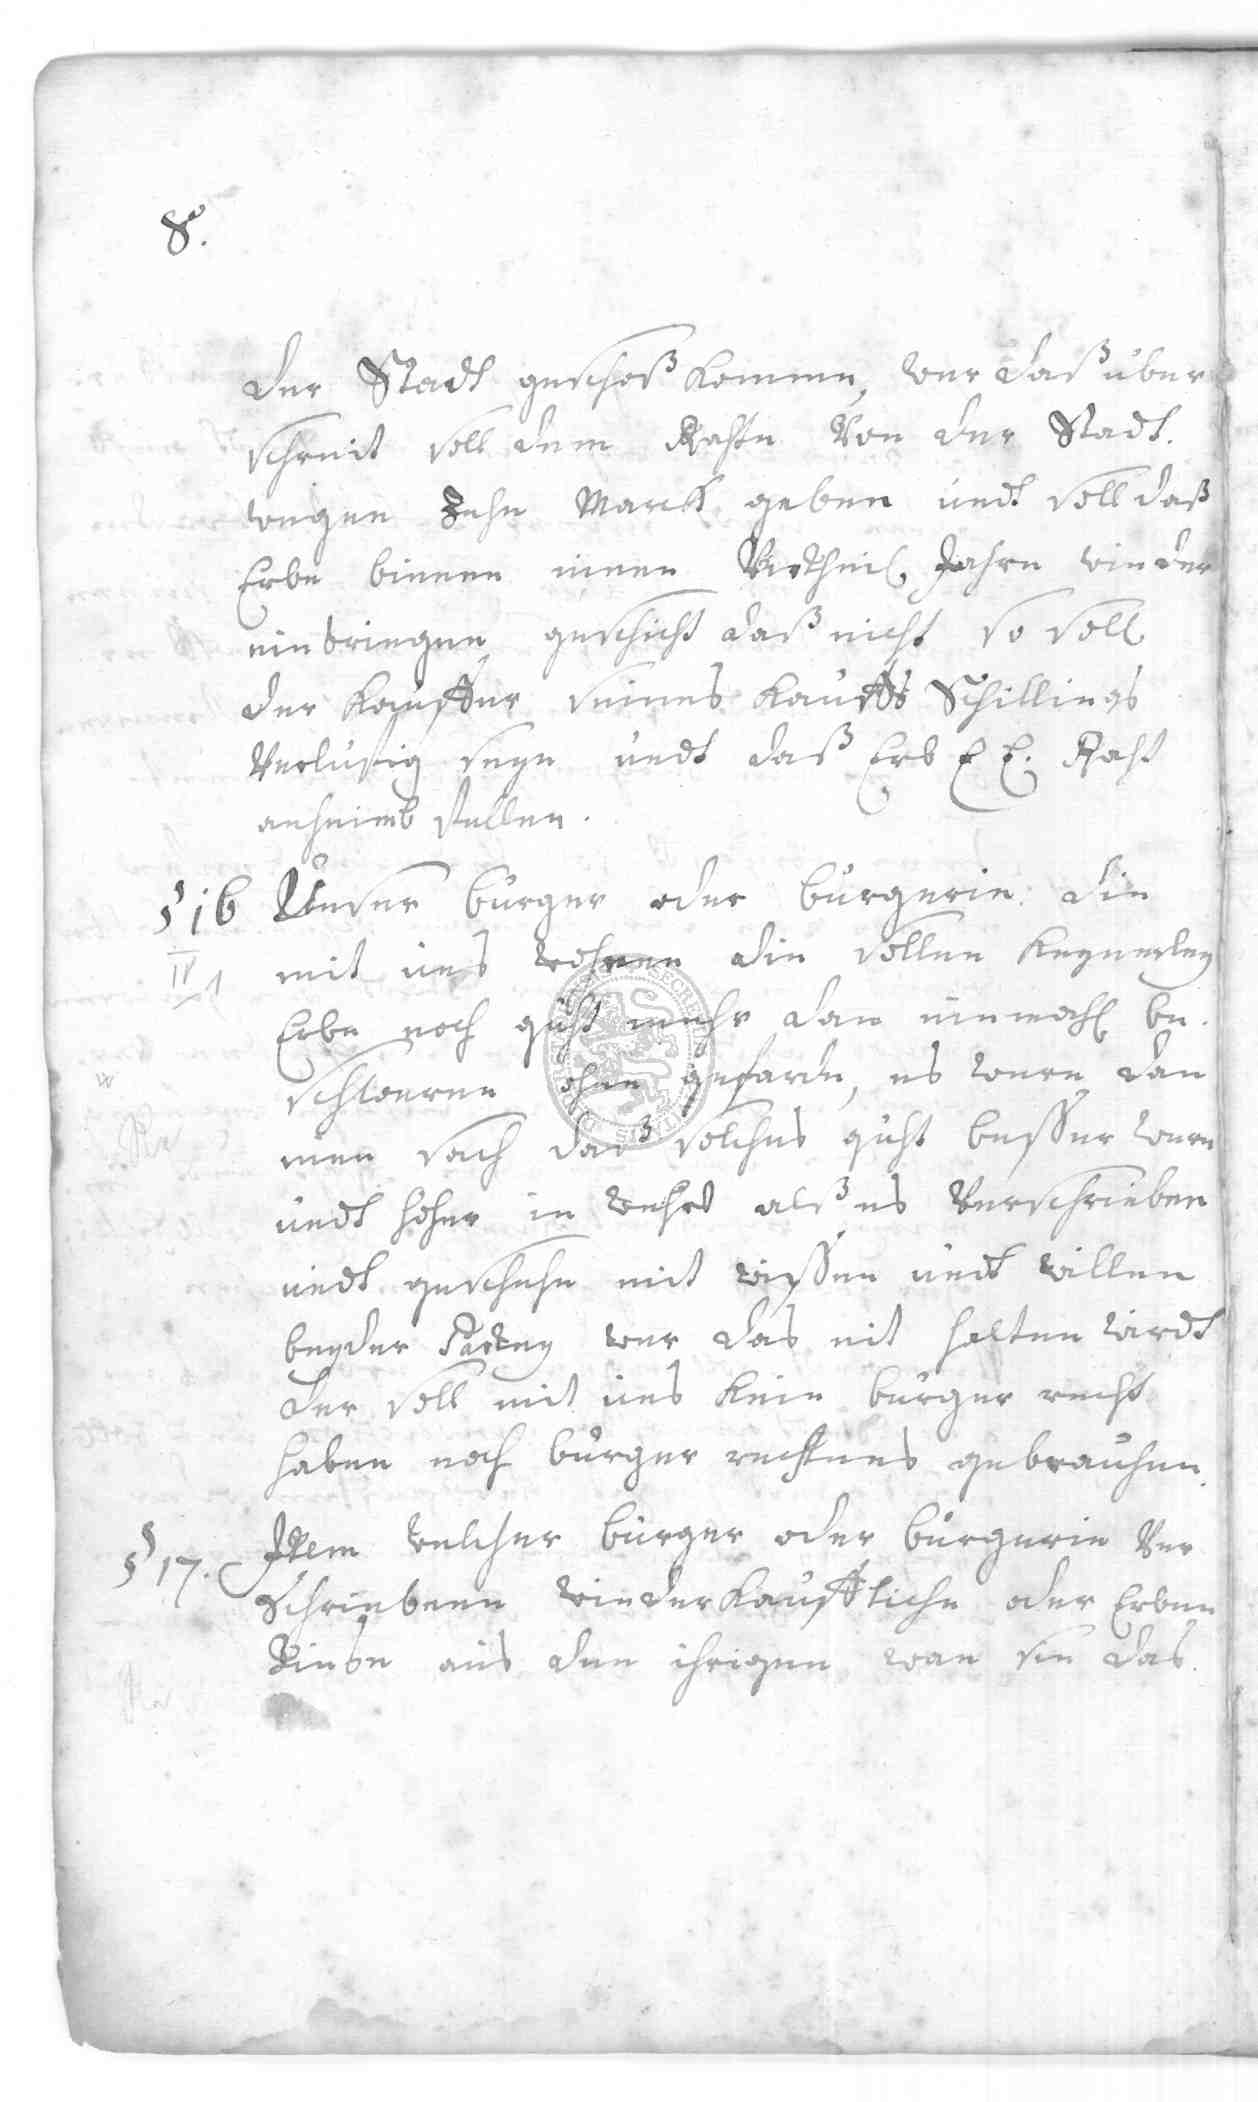 8.
der Stadt geschoß komme, wer daß über
schreit soll dem Rahte Von der Stadt.
wegen Zehn Marck geben undt soll daß
Erbe binnen einen Virtheil Jahre wieder
einbringen geschicht daß nicht so soll
der Kauffer seines Kauffs Schillings
Verlustig seyn undt daß Erb E E. Raht
anheimb stellen.
§ 16 Unser burger oder burgerin die
mit uns wohnen die sollen keynerley
IV 1
Erbe noch guht mehr dan einmahl be
schweren ohne gefarde, es were dan
eien sach daß solches guht besser were
undt hoher in wehrt alß es Verschrieben
undt geschehe mit wissen undt willen
beyder Partey wer das nit halten wirdt
der soll mit uns kein burger recht
haben noch burger rechtens gebrauchen.
§ 17. Item welcher burger oder burgerin Ver
schrieben wiederkauffliche oder Erben
Zinse aus den ihrigen wan sie das